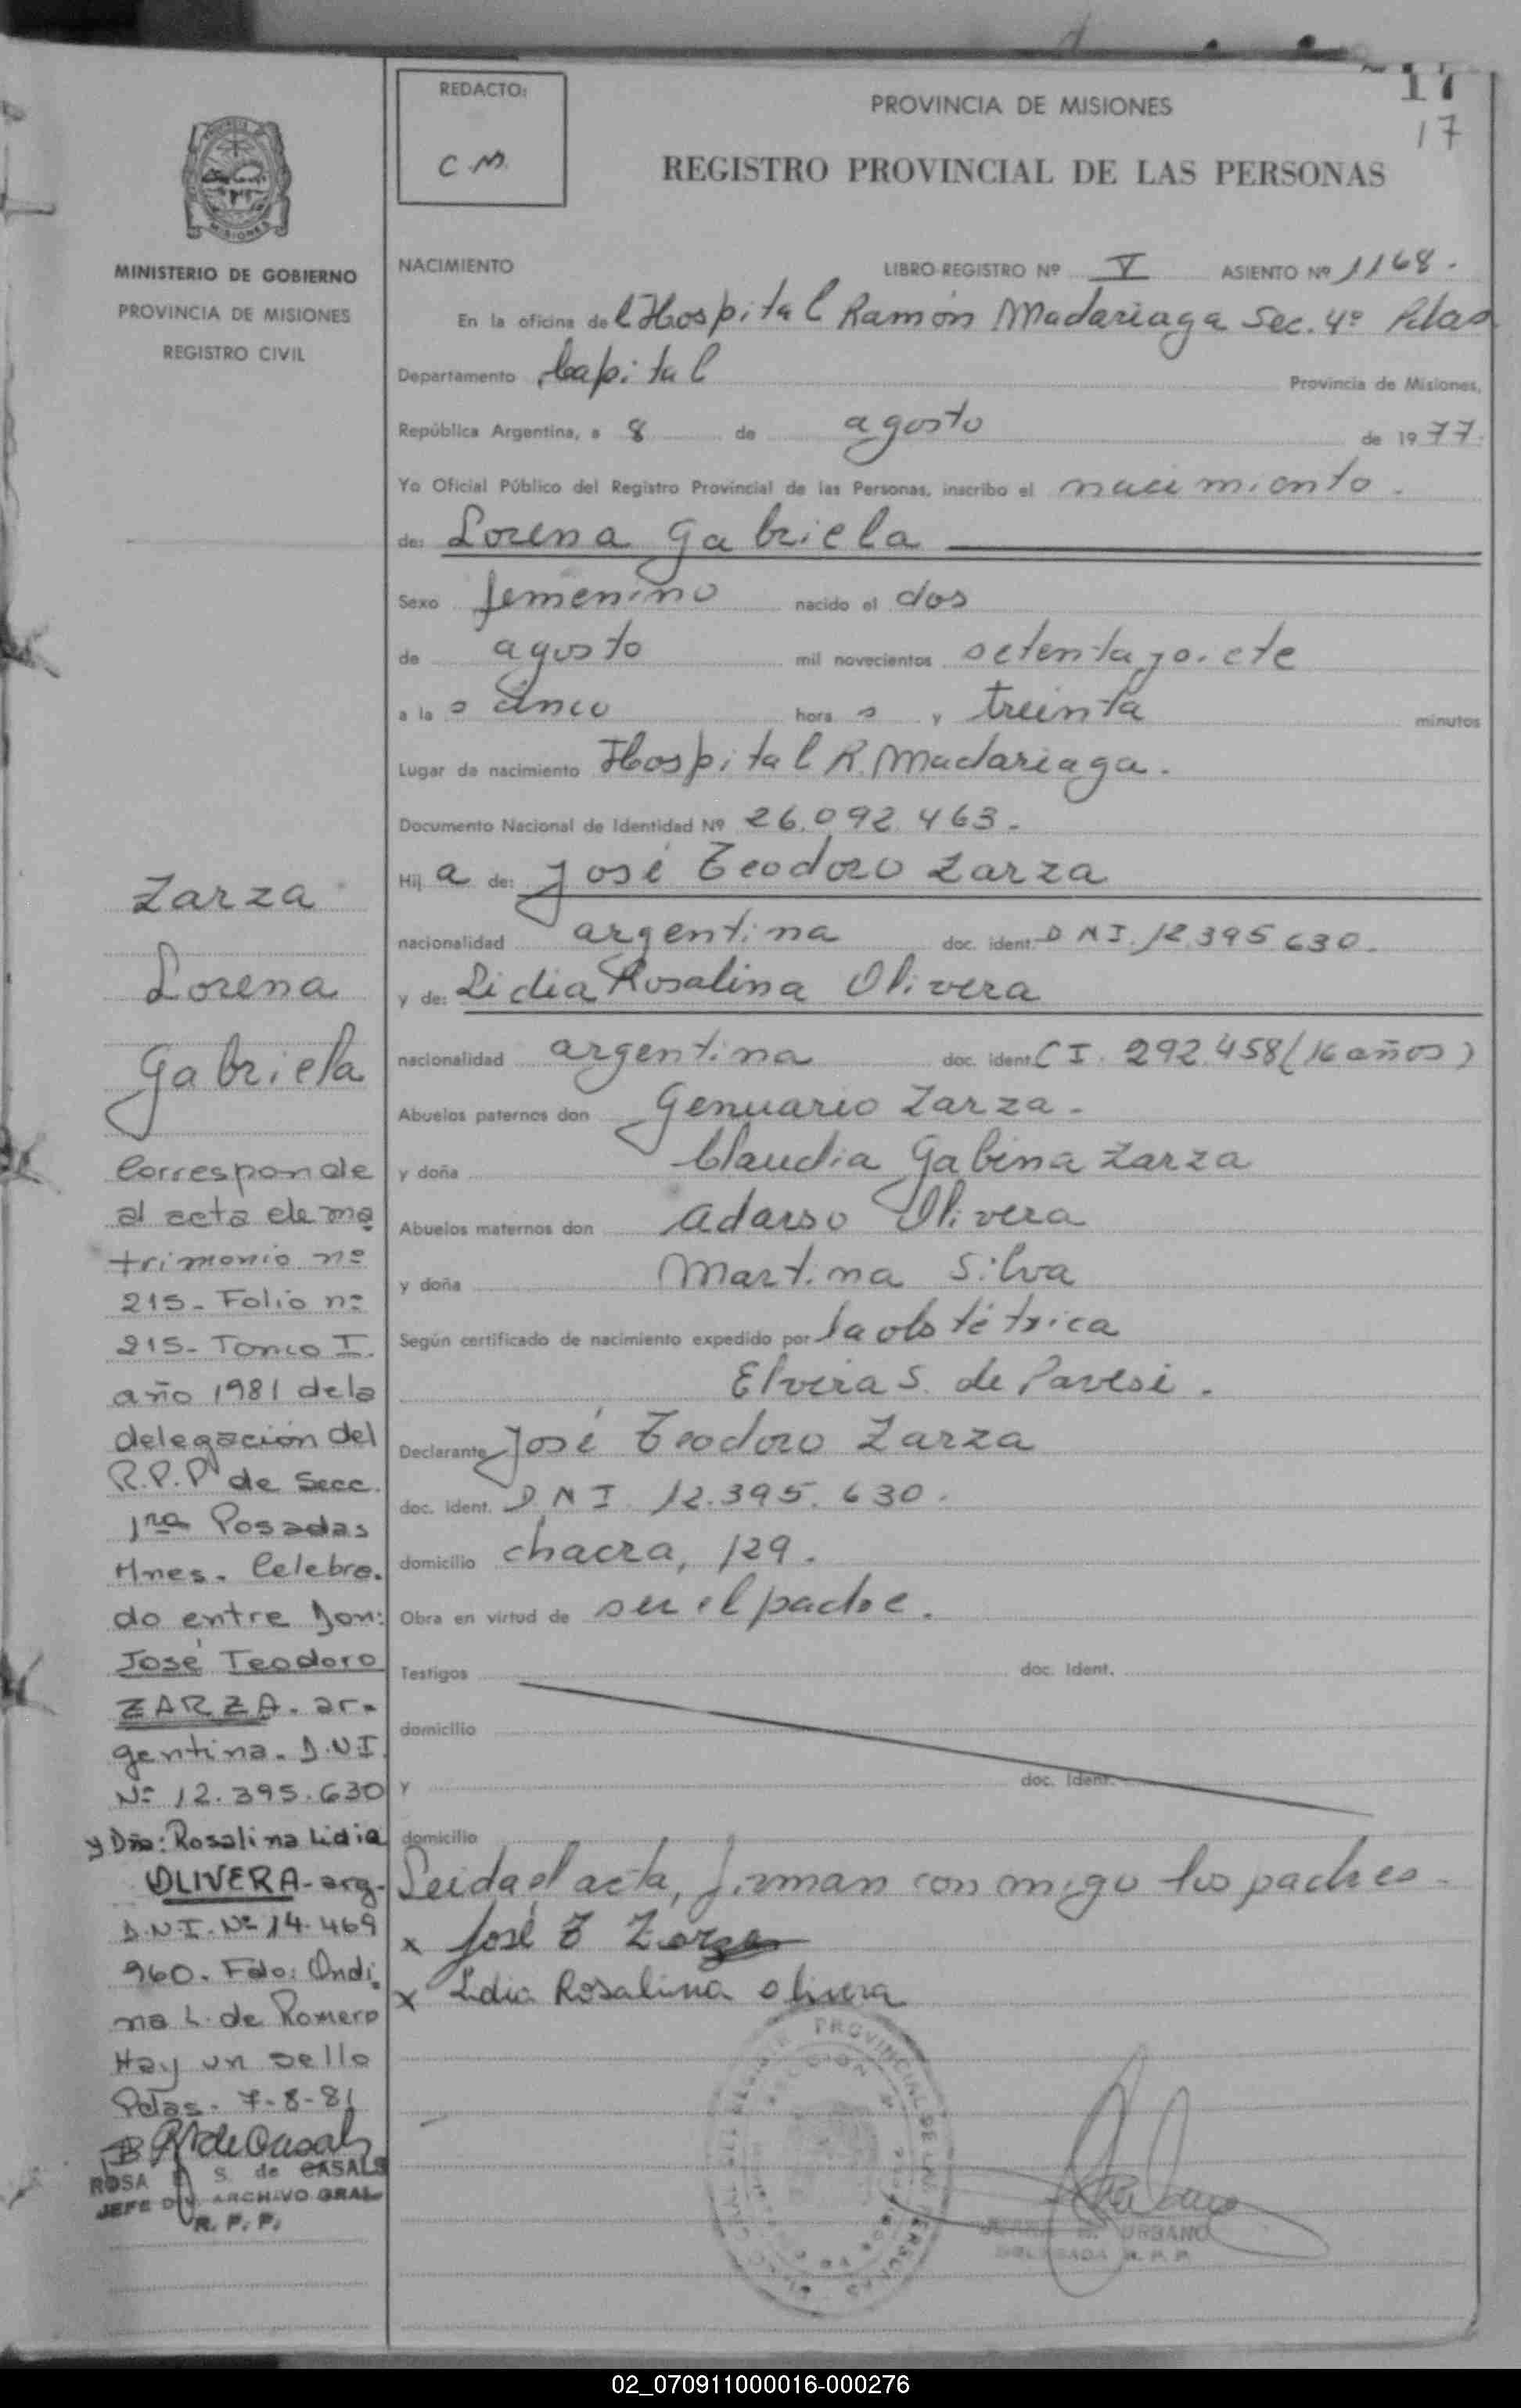 17
17
REDACTO:
C.M.
PROVINCIA DE MISIONES
REGISTRO PROVINCIAL DE LAS PERSONAS
MINISTERIO DE GOBIERNO
PROVINCIA DE MISIONES
REGISTRO CIVIL
NACIMIENTO LIBRO-REGISTRO Nº V ASIENTO Nº 1168.
En la oficina del Hospital Ramón Madariaga Sec. 4º Pdas
Departamento Capital Provincia de Misiones,
República Argentina, a 8 de agosto de 1977.
Yo Oficial Público del Registro Provincial de las Personas, inscribo el nacimiento.
de: Lorena Gabriela
Sexo femenino nacido el dos
de agosto mil novecientos setenta y siete
a las cinco horas y treinta minutos
Lugar de nacimiento Hospital R. Madariaga.
Documento Nacional de Identidad Nº 26.092.463.
Hija de: José Teodoro Zarza
nacionalidad argentina doc. ident. DNI. 12.395.630.
y de: Lidia Rosalina Olivera
nacionalidad argentina doc. ident. CI. 292.458 (16 años)
Abuelos paternos don Genuario Zarza.
y doña Claudia Gabina Zarza
Abuelos maternos don Olivera
y doña Martina Silva
Según certificado de nacimiento expedido por la obstétrica
Elvira S. de Pavesi.
Declarante José Teodoro Zarza
doc. ident. DNI 12.395.630.
domicilio chacra, 129.
Obra en virtud de ser el padre.
Testigos doc. ident.
domicilio
y doc. ident.
domicilio
Leida el acta, firman conmigo los padres.
x José T Zarza
x Lidia Rosalina Olivera
URBANO
DELEGADA R.P.P.
Zarza
Lorena
Gabriela
Corresponde
al acta de ma
trimonio nº
215- Folio nº
215- Tomo I.
año 1981 de la
delegación del
R.P.P de Secc.
1ra Posadas
Mnes. Celebra.
do entre Don:
José Teodoro
ZARZA. ar-
gentina. D.N.I.
Nº 12.395.630
y Dña: Rosalina Lidia
OLIVERA-arg-
D.N.I. Nº 14.469
960. Fdo: Ondi
na L. de Romero
Hay un sello
Pdas. 7-8-81
ROSA S. de CASALS
JEFE DIV. ARCHIVO GRAL
R. P. P.
02_070911000016-000276